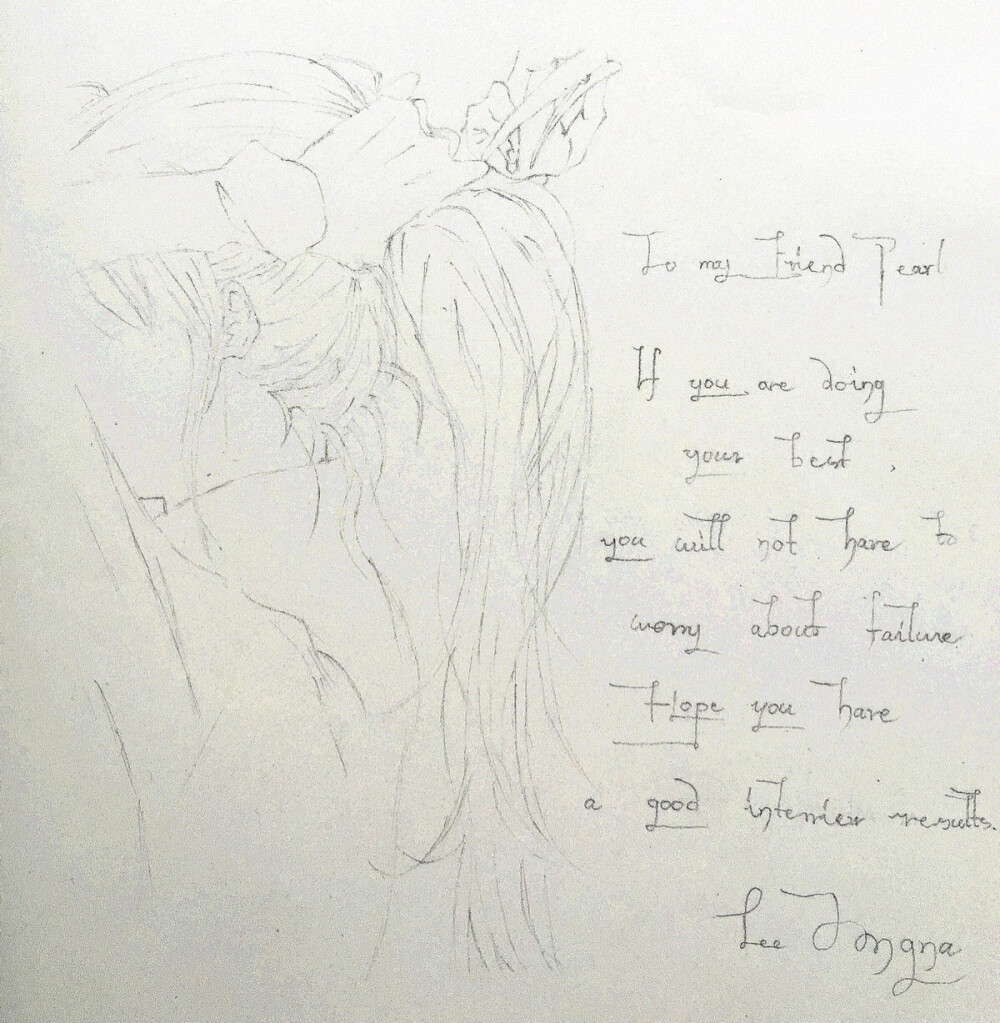 To my Friend Pearl
If you are doing
your best ,
you will not have to
worry about failure
Hope you have
a good interview results.
Lee